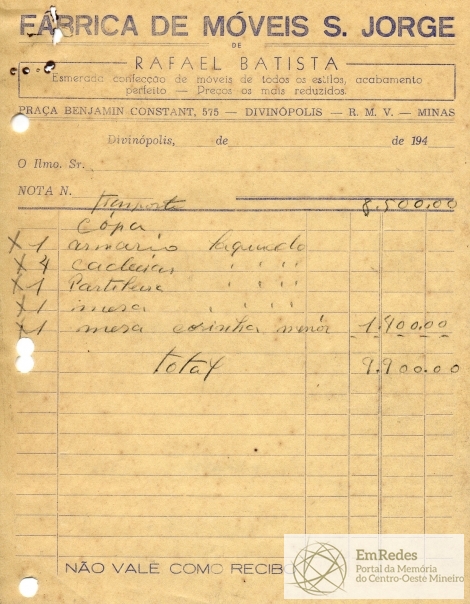 FÁBRICA DE MÓVEIS S. JORGE
DE
RAFAEL BATISTA
Esmerada confecção de móveis de todos os estilos, acabamento
perfeito — Preços os mais reduzidos.
PRAÇA BENJAMIN CONSTANT, 575 — DIVINÓPOLIS — R. M. V. — MINAS
Divinópolis, de de 194
O Ilmo. Sr.
NOTA N.
transporte 8.500.00
Cópa
X 1 armario laqueado
X 4 cadeiras " " " "
X 1 Partileira " " " "
X 1 mesa " " " "
X 1 mesa cosinha menór 1.400.00
total 9.900.00
NÃO VALE COMO RECIBO
EmRedes
Portal da Memória
do Centro-Oeste Mineiro